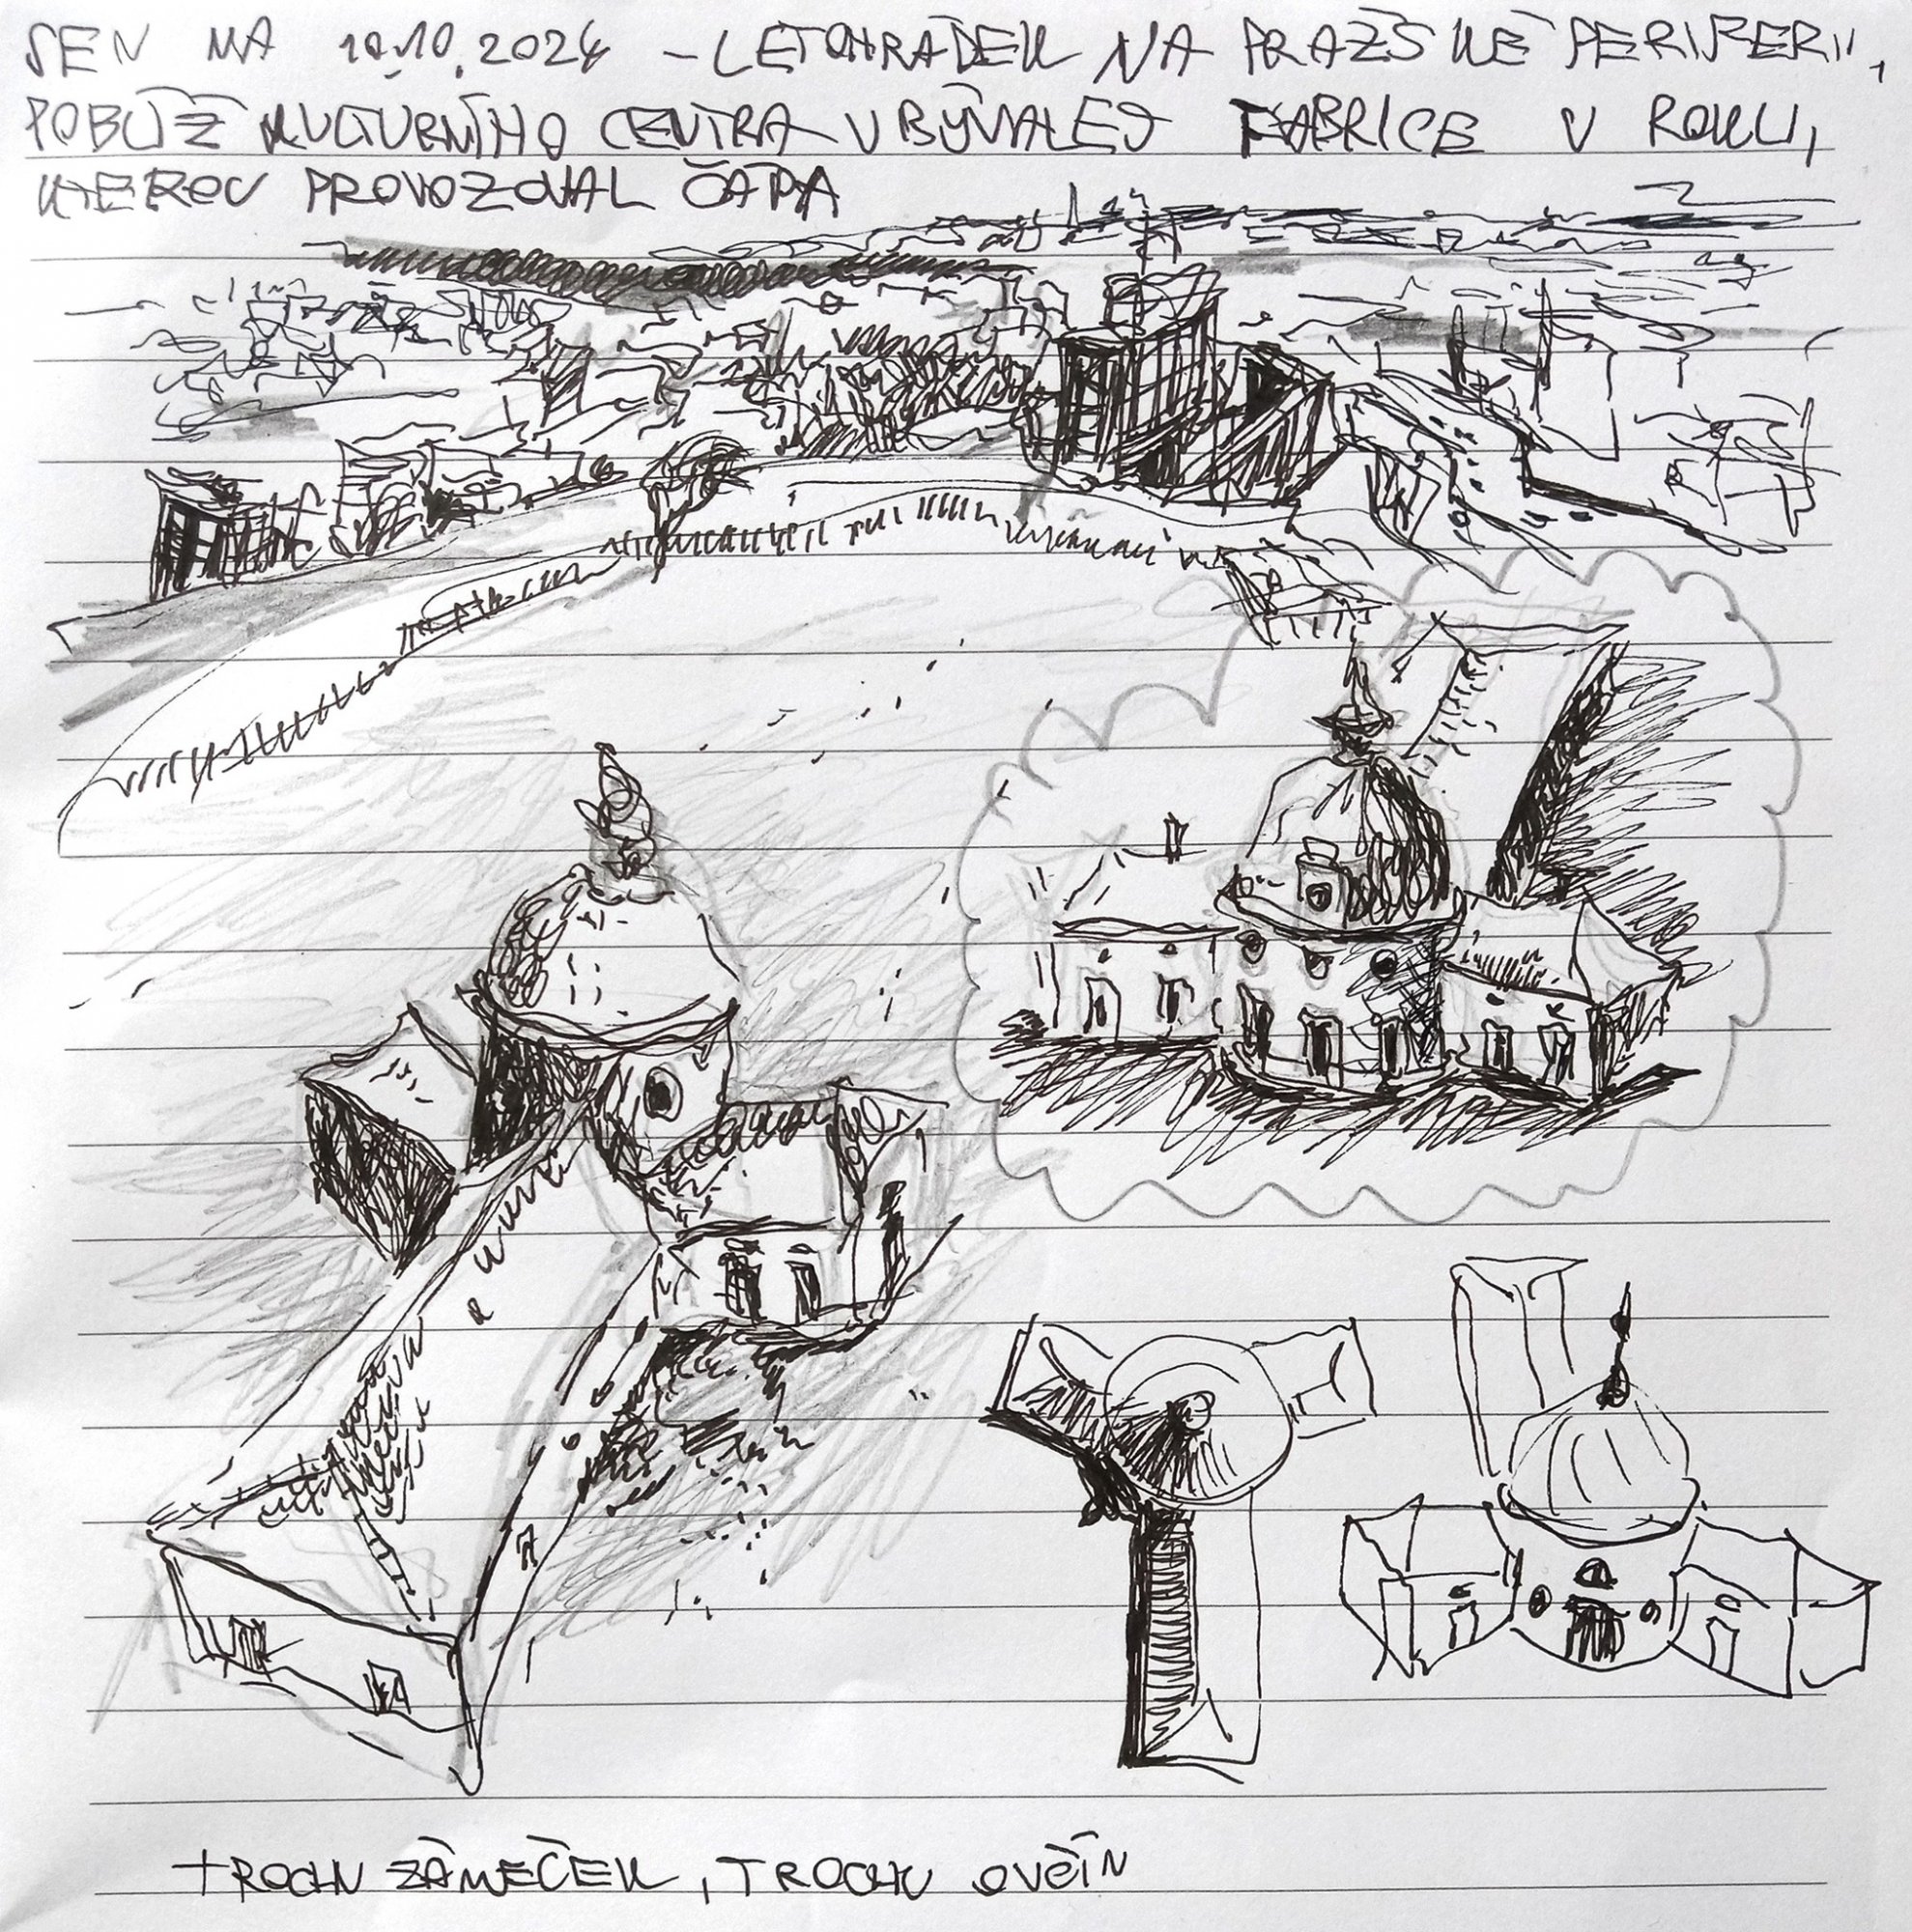 SEN NA 10.10.2024 - LETOHRÁDEK NA PRAŽSKÉ PERIFERII,
POBLÍŽ KULTURNÍHO CENTRA V BÝVALEJ FABRICE V ROKLI,
KTEROU PROVOZOVAL ČÁPA
TROCHU ZÁMEČEK, TROCHU OVČÍN